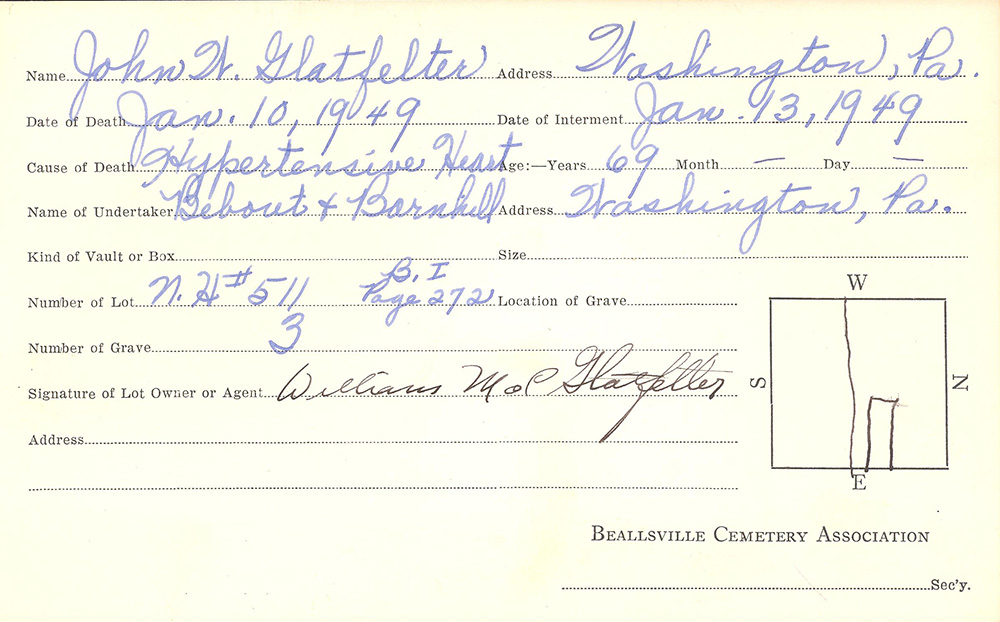 Name John W. Glatfelter Address Washington, Pa.
Date of Death Jan. 10, 1949 Date of Interment Jan. 13, 1949
Cause of Death Hypertensive Heart Age:—Years 69 Month — Day —
Name of Undertaker Bebout & Barnhill Address Washington, Pa.
Kind of Vault or Box Size
B. I
Number of Lot N. H # 511 Page 272 Location of Grave
Number of Grave 3
Signature of Lot Owner or Agent William Glatfelter
Address
W
S
N
E
BEALLSVILLE CEMETERY ASSOCIATION
Sec'y.